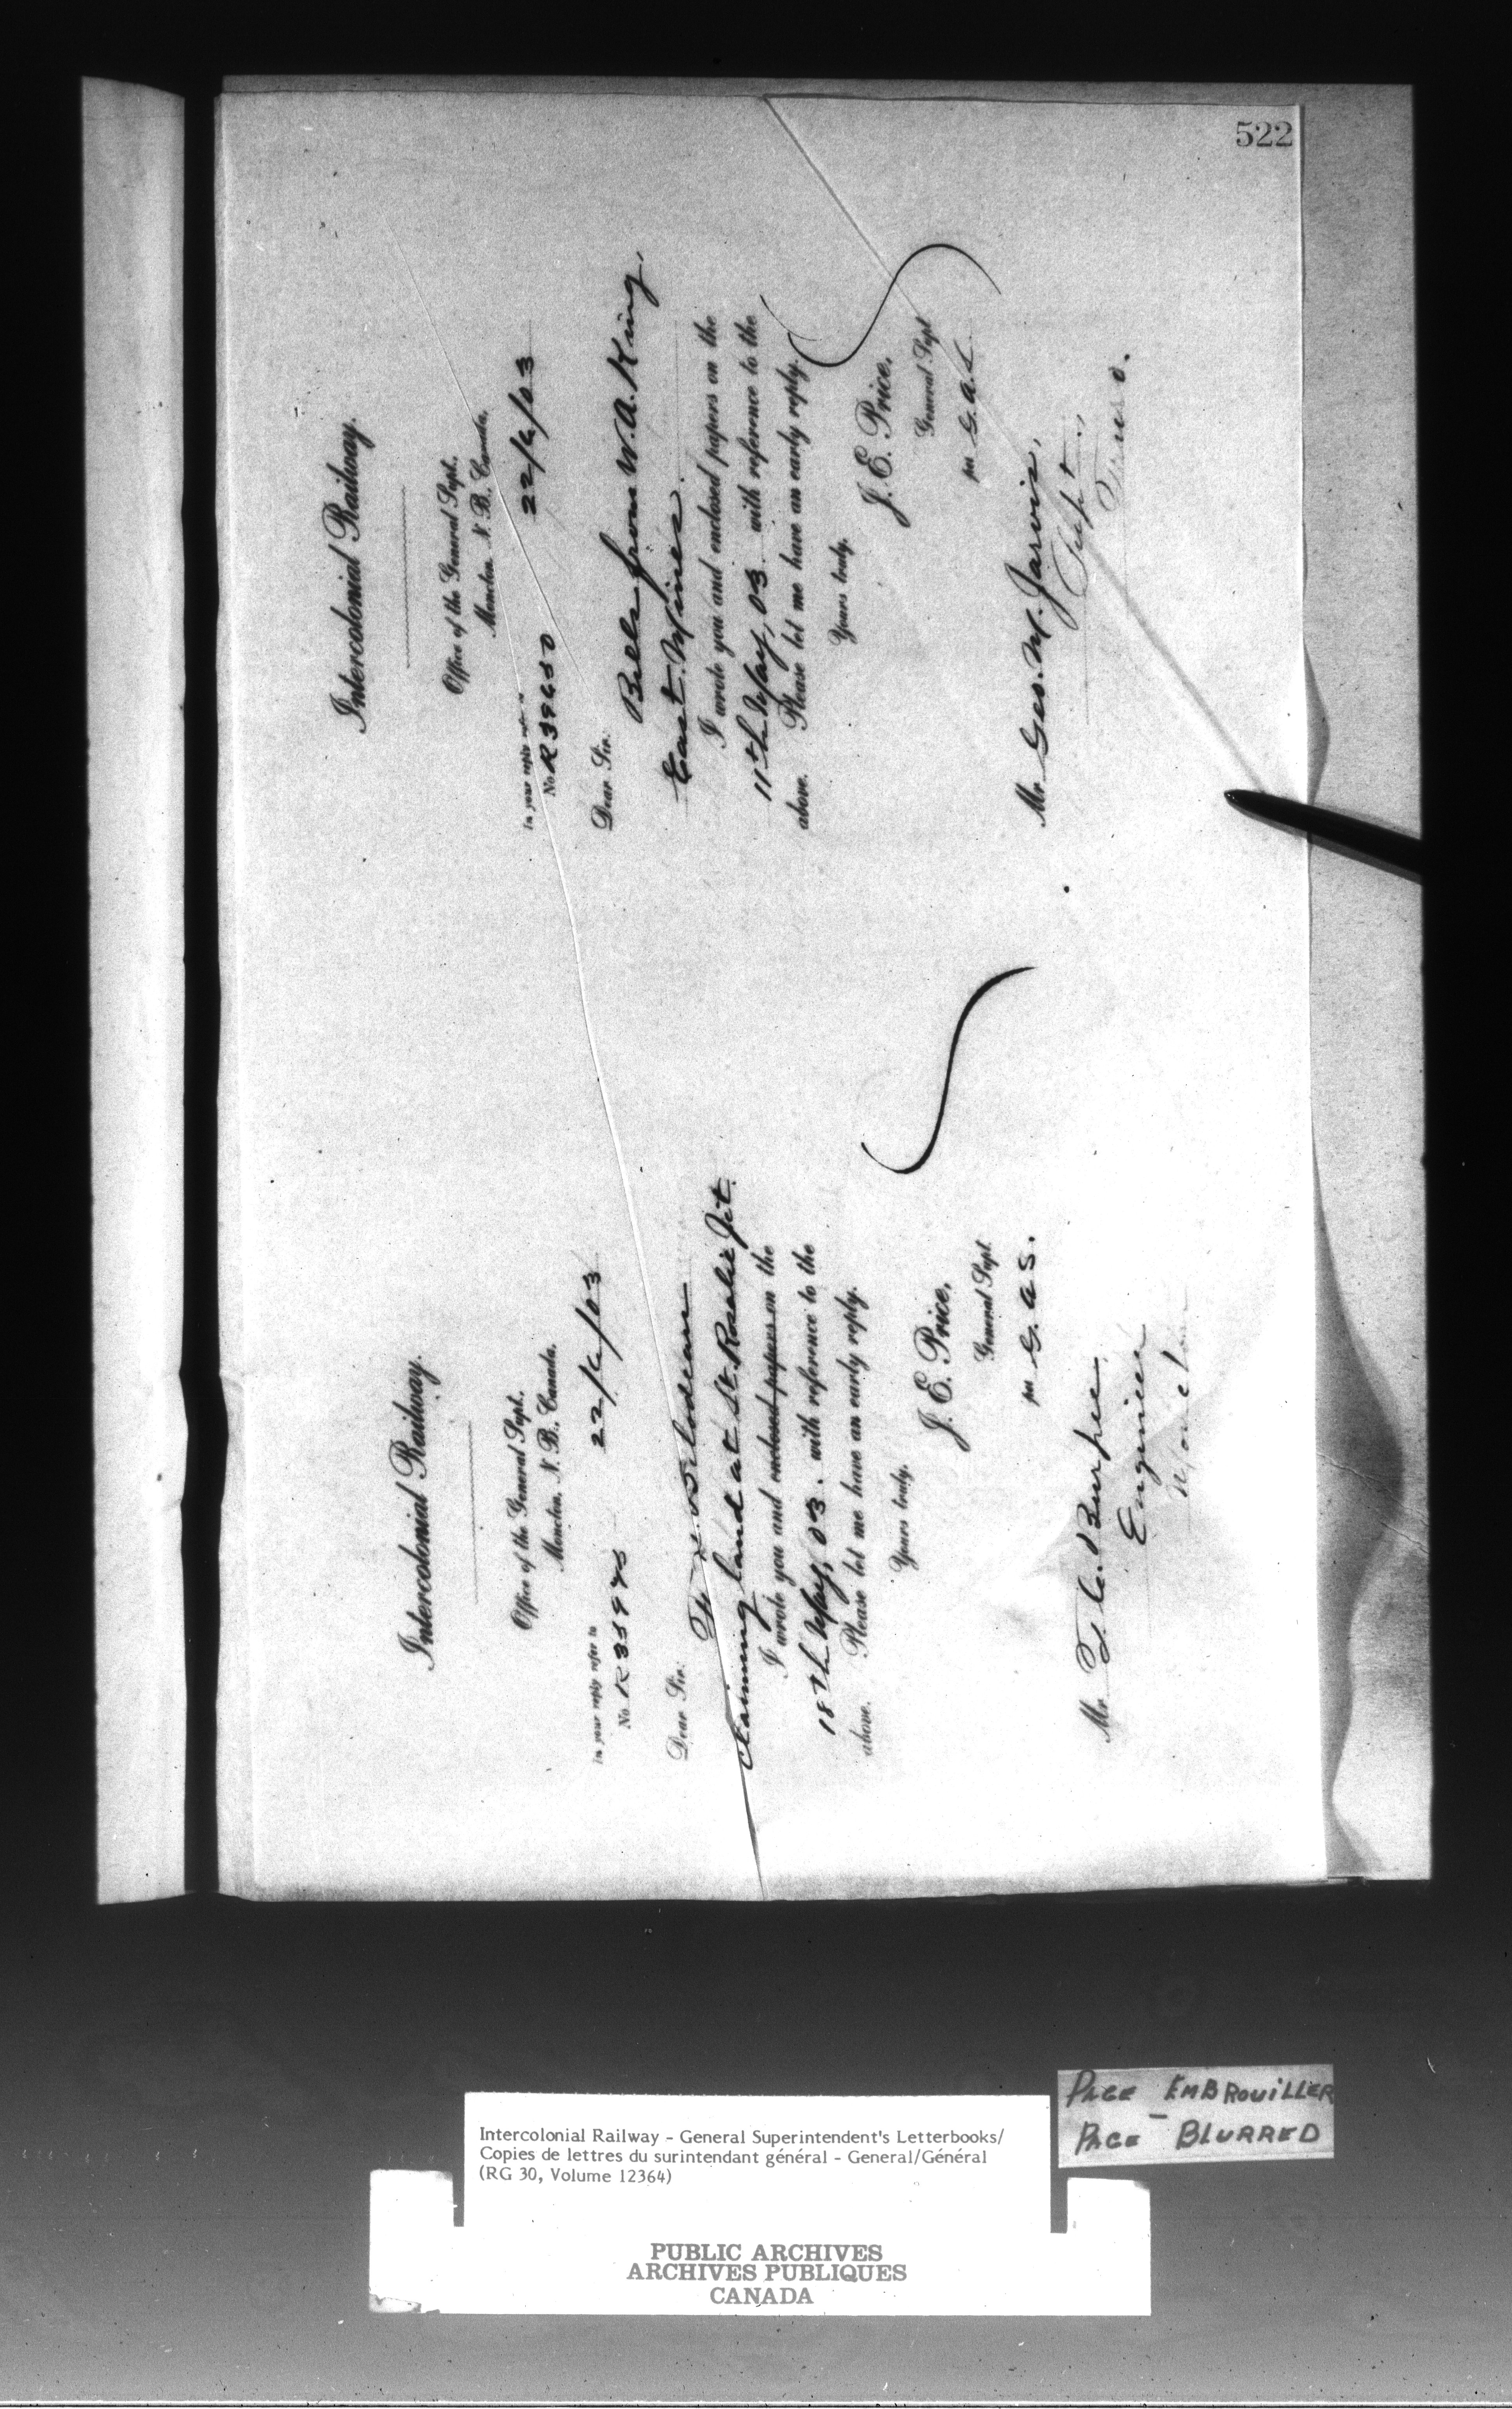 522
Intercolonial Railway.
Office of the General Supt.
Moncton, N. B., Canada,
22/6/03
In your reply refer to
No. R35995
Dear Sir:
claiming land at St. Rosalie Jct.
I wrote you and enclosed papers on the
18th May, 03. with reference to the
above. Please let me have an early reply.
Yours truly,
J. E. Price,
General Supt.
per G. A. S.
Mr. T. C. Burpee,
Engineer
Moncton
Intercolonial Railway.
Office of the General Supt.
Moncton, N. B., Canada,
22/6/03
In your reply refer to
No. R39650
Dear Sir:
Bills from W. A. King,
East Mines.
I wrote you and enclosed papers on the
11th May, 03 with reference to the
above. Please let me have an early reply.
Yours truly,
J. E. Price,
General Supt
per G. A. S.
Mr. Geo. M. Jarvis,
Supt.,
Truro.
PAGE EMBROUILLER
PAGE - BLURRED
Intercolonial Railway - General Superintendent's Letterbooks/
Copies de lettres du surintendant général - General/Général
(RG 30, Volume 12364)
PUBLIC ARCHIVES
ARCHIVES PUBLIQUES
CANADA